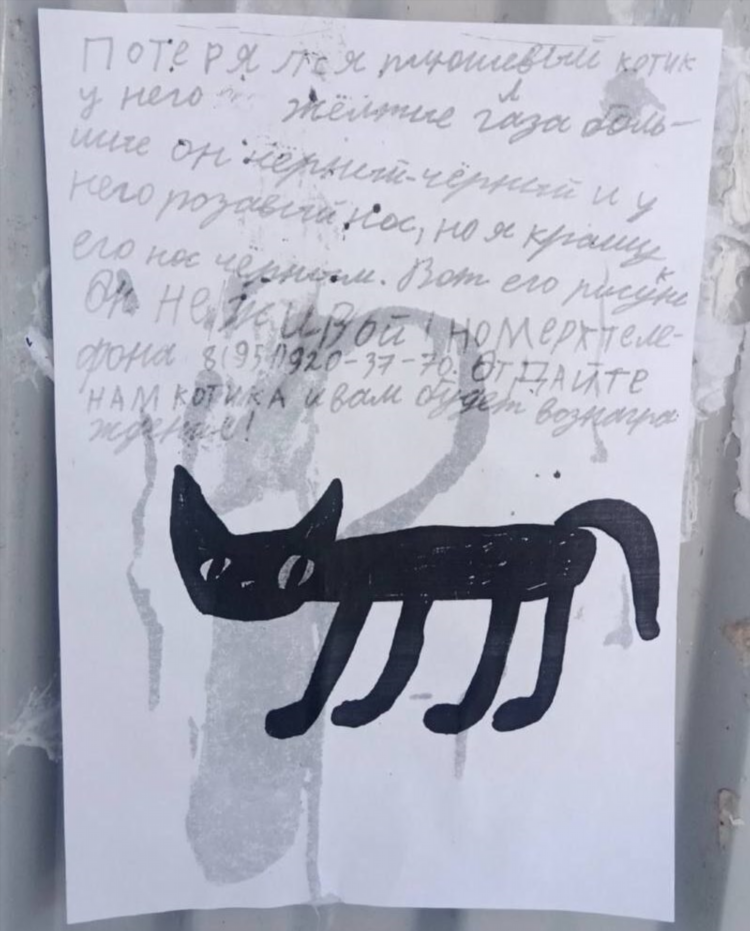 Потерялся плюшевый котик
у него жёлтые глаза боль-
шие он черный-чёрный и у
него розавый нос, но я крашу
его нос чёрным. Вот его рисунк
Он не живой! номерх теле-
фона 8(951)920-37-70. Отдайте
нам котика и вам будет вознагра-
ждение!